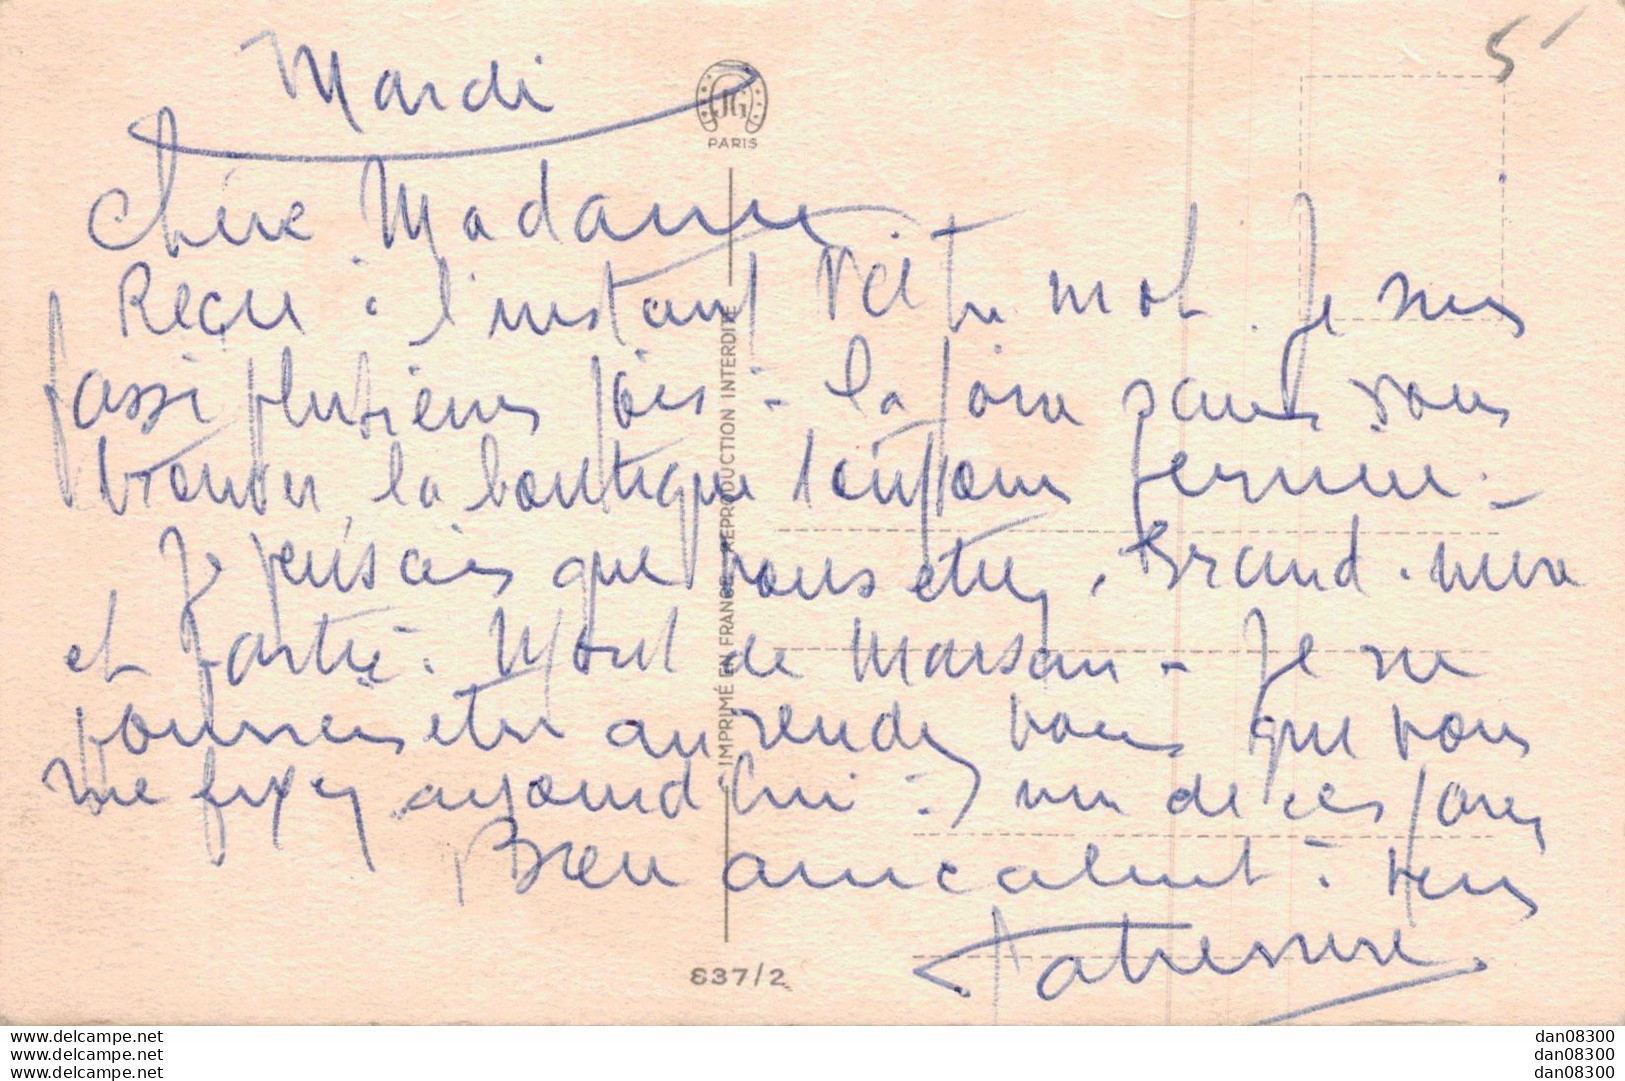 5
Mardi
JG
PARIS
Chère Madame
Reçu à l'instant votre mot. Je suis
passé plusieurs fois à la foire sans vous
trouver, la boutique toujours fermée. -
Je pensais que vous étiez, Grand-mère
et partie à Mont de Marsan - Je ne
pourrais être au rendez vous que vous
me fixez aujourd'hui : un de ces jours
Bien amicalement à vous
IMPRIMÉ EN FRANCE. REPRODUCTION INTERDITE
837/2
www.delcampe.net
www.delcampe.net
www.delcampe.net
dan08300
dan08300
dan08300